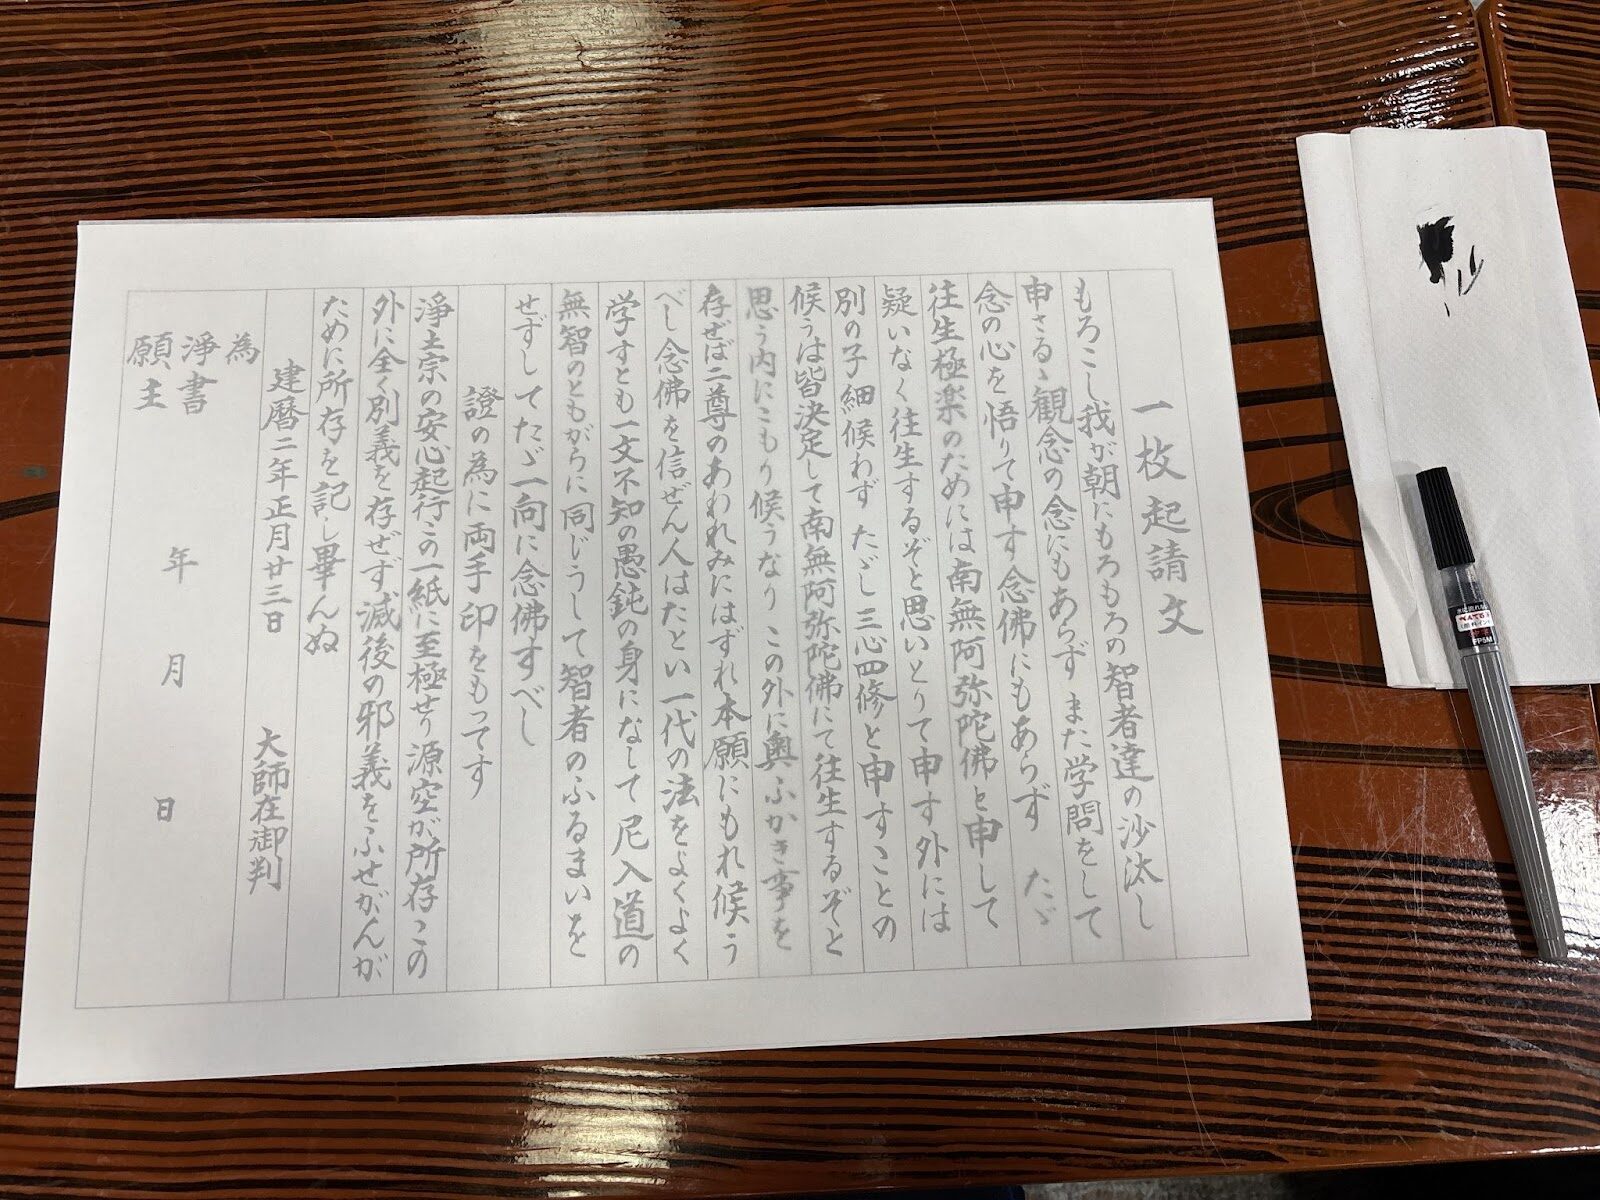 一枚起請文
もろこし我が朝にもろもろの智者達の沙汰し
申さるゝ観念の念にもあらず また学問をして
念の心を悟りて申す念佛にもあらず たゞ
往生極楽のためには南無阿弥陀佛と申して
疑いなく往生するぞと思いとりて申す外には
別の子細候わず たゞし三心四修と申すことの
候うは皆決定して南無阿弥陀佛にて往生するぞと
思う内にこもり候うなり この外に奥ふかき事を
存ぜば二尊のあわれみにはずれ本願にもれ候う
べし 念佛を信ぜん人はたとい一代の法をよくよく
学すとも一文不知の愚鈍の身になして尼入道の
無智のともがらに同じうして智者のふるまいを
せずしてたゞ一向に念佛すべし
證の為に両手印をもってす
浄土宗の安心起行この一紙に至極せり 源空が所存この
外に全く別義を存ぜず 滅後の邪義をふせがんが
ために所存を記し畢んぬ
建暦二年正月廿三日 大師在御判
為
淨書 年 月 日
願主
ぺんてる
筆
FP5M